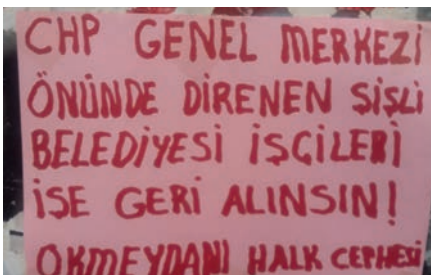 CHP GENEL MERKEZİ
ÖNÜNDE DİRENEN ŞİŞLİ
BELEDİYESİ İŞÇİLERİ
İŞE GERİ ALINSIN!
OKMEYDANI HALK CEPHESİ